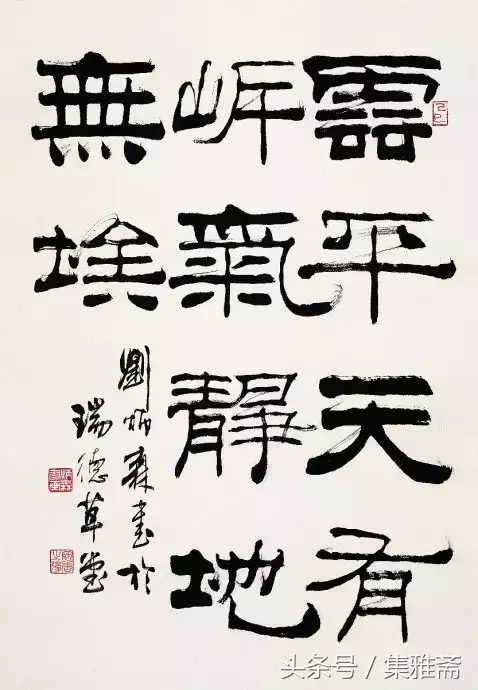 雲平天有
㟁氣靜地
無埃
劉炳森書於
瑞德草堂
头条号 / 集雅斋